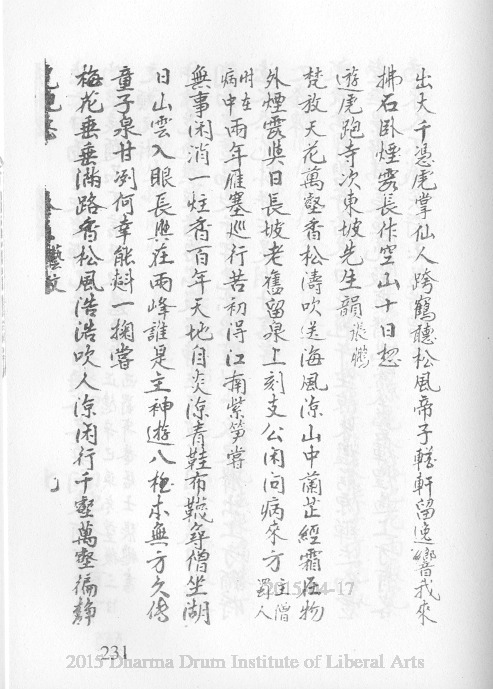 出大千憑虎掌仙人跨鶴聽松風帝子輶軒留逸響我來
拂石臥煙霧長作空山十日想
遊虎跑寺次東坡先生韻 張鵬
梵放天花萬壑香松濤吹送海風涼山中蘭芷經霜在物
外煙霞與日長坡老舊留泉上刻支公閑問病來方 主僧蜀人
時在病中兩年雁塞巡行苦初得江南紫笋嘗
無事閑消一炷香百年天地自炎涼青鞋布韈尋僧坐湖
日山雲入眼長興在兩峰誰是主神遊八極本無方久傳
童子泉甘冽何幸能斟一掬嘗
梅花垂垂滿路香松風浩浩吹人涼閑行千壑萬壑徧靜
藝文
231
2015-04-17
2015 Dharma Drum Institute of Liberal Arts